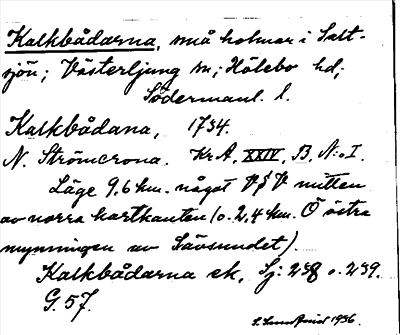 Kalkbådarna, små holmar i Salt-
sjön; Västerljung sn; Hölebo hd;
Södermanl. l.
Kalkbådana, 1734.
N. Strömcrona. Kr A, XXIV, B, N:o I.
Läge 9,6 km. något V § V mitten
av norra kartkanten (o. 2,4 km. Ö östra
mynningen av Sävsundet).
Kalkbådarna ek, Sj: 238 o. 239.
G. 57.
1936.